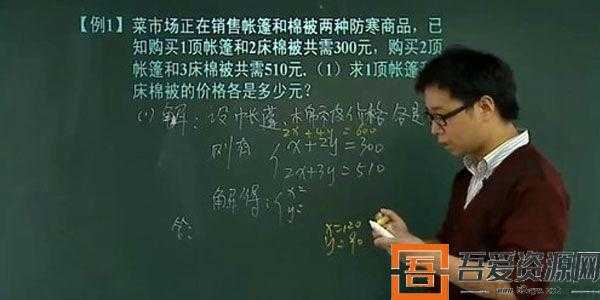 【例1】菜市场正在销售帐篷和棉被两种防寒商品，已
知购买1顶帐篷和2床棉被共需300元，购买2顶
帐篷和3床棉被共需510元.（1）求1顶帐篷
床棉被的价格各是多少元？
(1) 解：设帐篷、棉被价格各是
2x+4y=600
则有 { x+2y=300
2x+3y=510
解得：{ x=
y=
答：
x=120
y=90
吾爱资源网